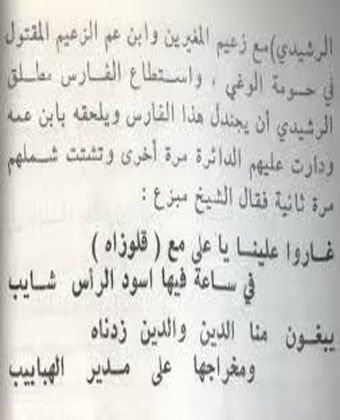 الرشيدي) مع زعيم المغيرين وابن عم الزعيم المقتول
في حومة الوغى ، واستطاع الفارس مطلق
الرشيدي أن يجندل هذا الفارس ويلحقه بابن عمه
ودارت عليهم الدائرة مرة أخرى وتشتت شملهم
مرة ثانية فقال الشيخ مبزع :
غاروا علينا يا على مع ( قلوزاه )
في ساعة فيها اسود الرأس شايب
يبغون منا الدين والدين زدناه
ومغراجها على مدير الهبايب